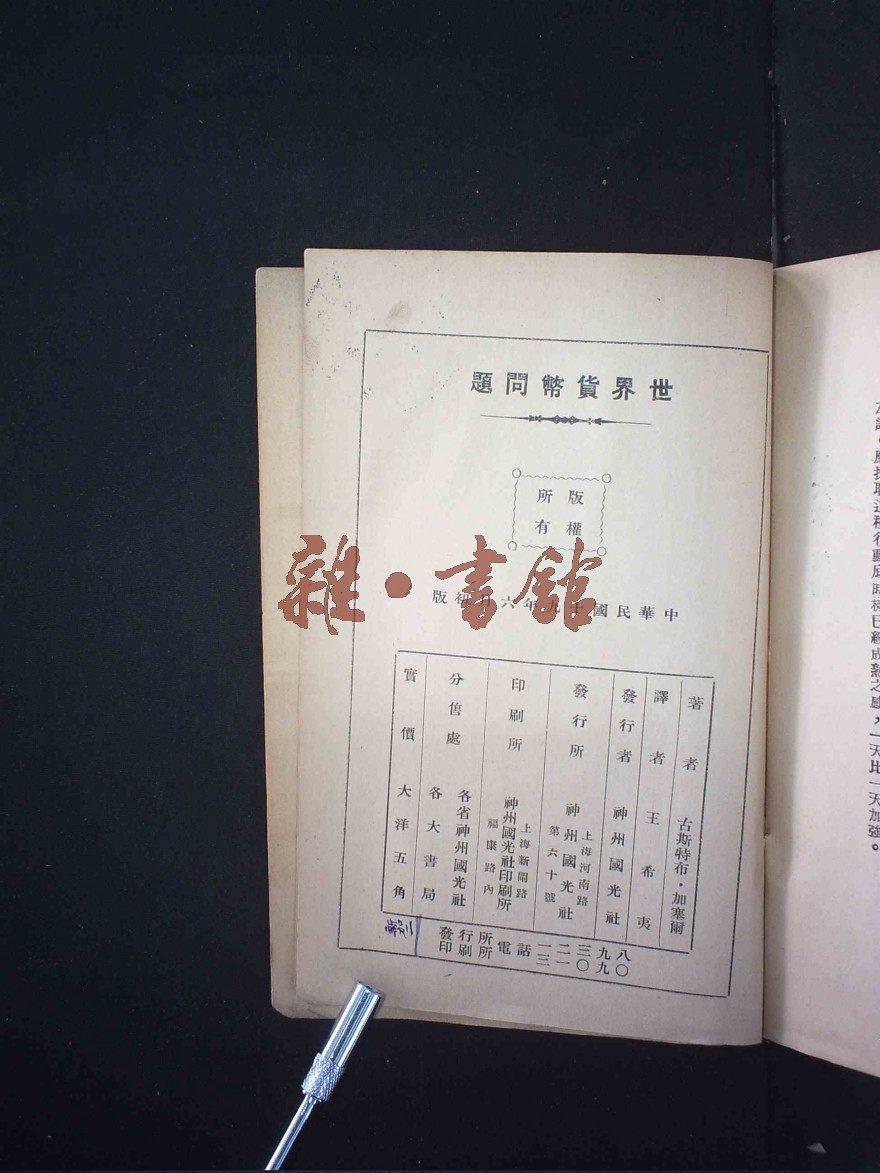 世界貨幣問題
版權
所有
中華民國十九年六月初版
著者 古斯特布・加塞爾
譯者 王希夷
發行者 神州國光社
發行所 神州國光社
上海河南路
第六十號
印刷所 神州國光社印刷所
上海新閘路
福康路內
分售處 各省神州國光社
各大書局
實價大洋五角
發行所電話一二三九八
印刷所電話三一〇九〇
雜・書館
時機已經成熟之感，一天比一天加強。